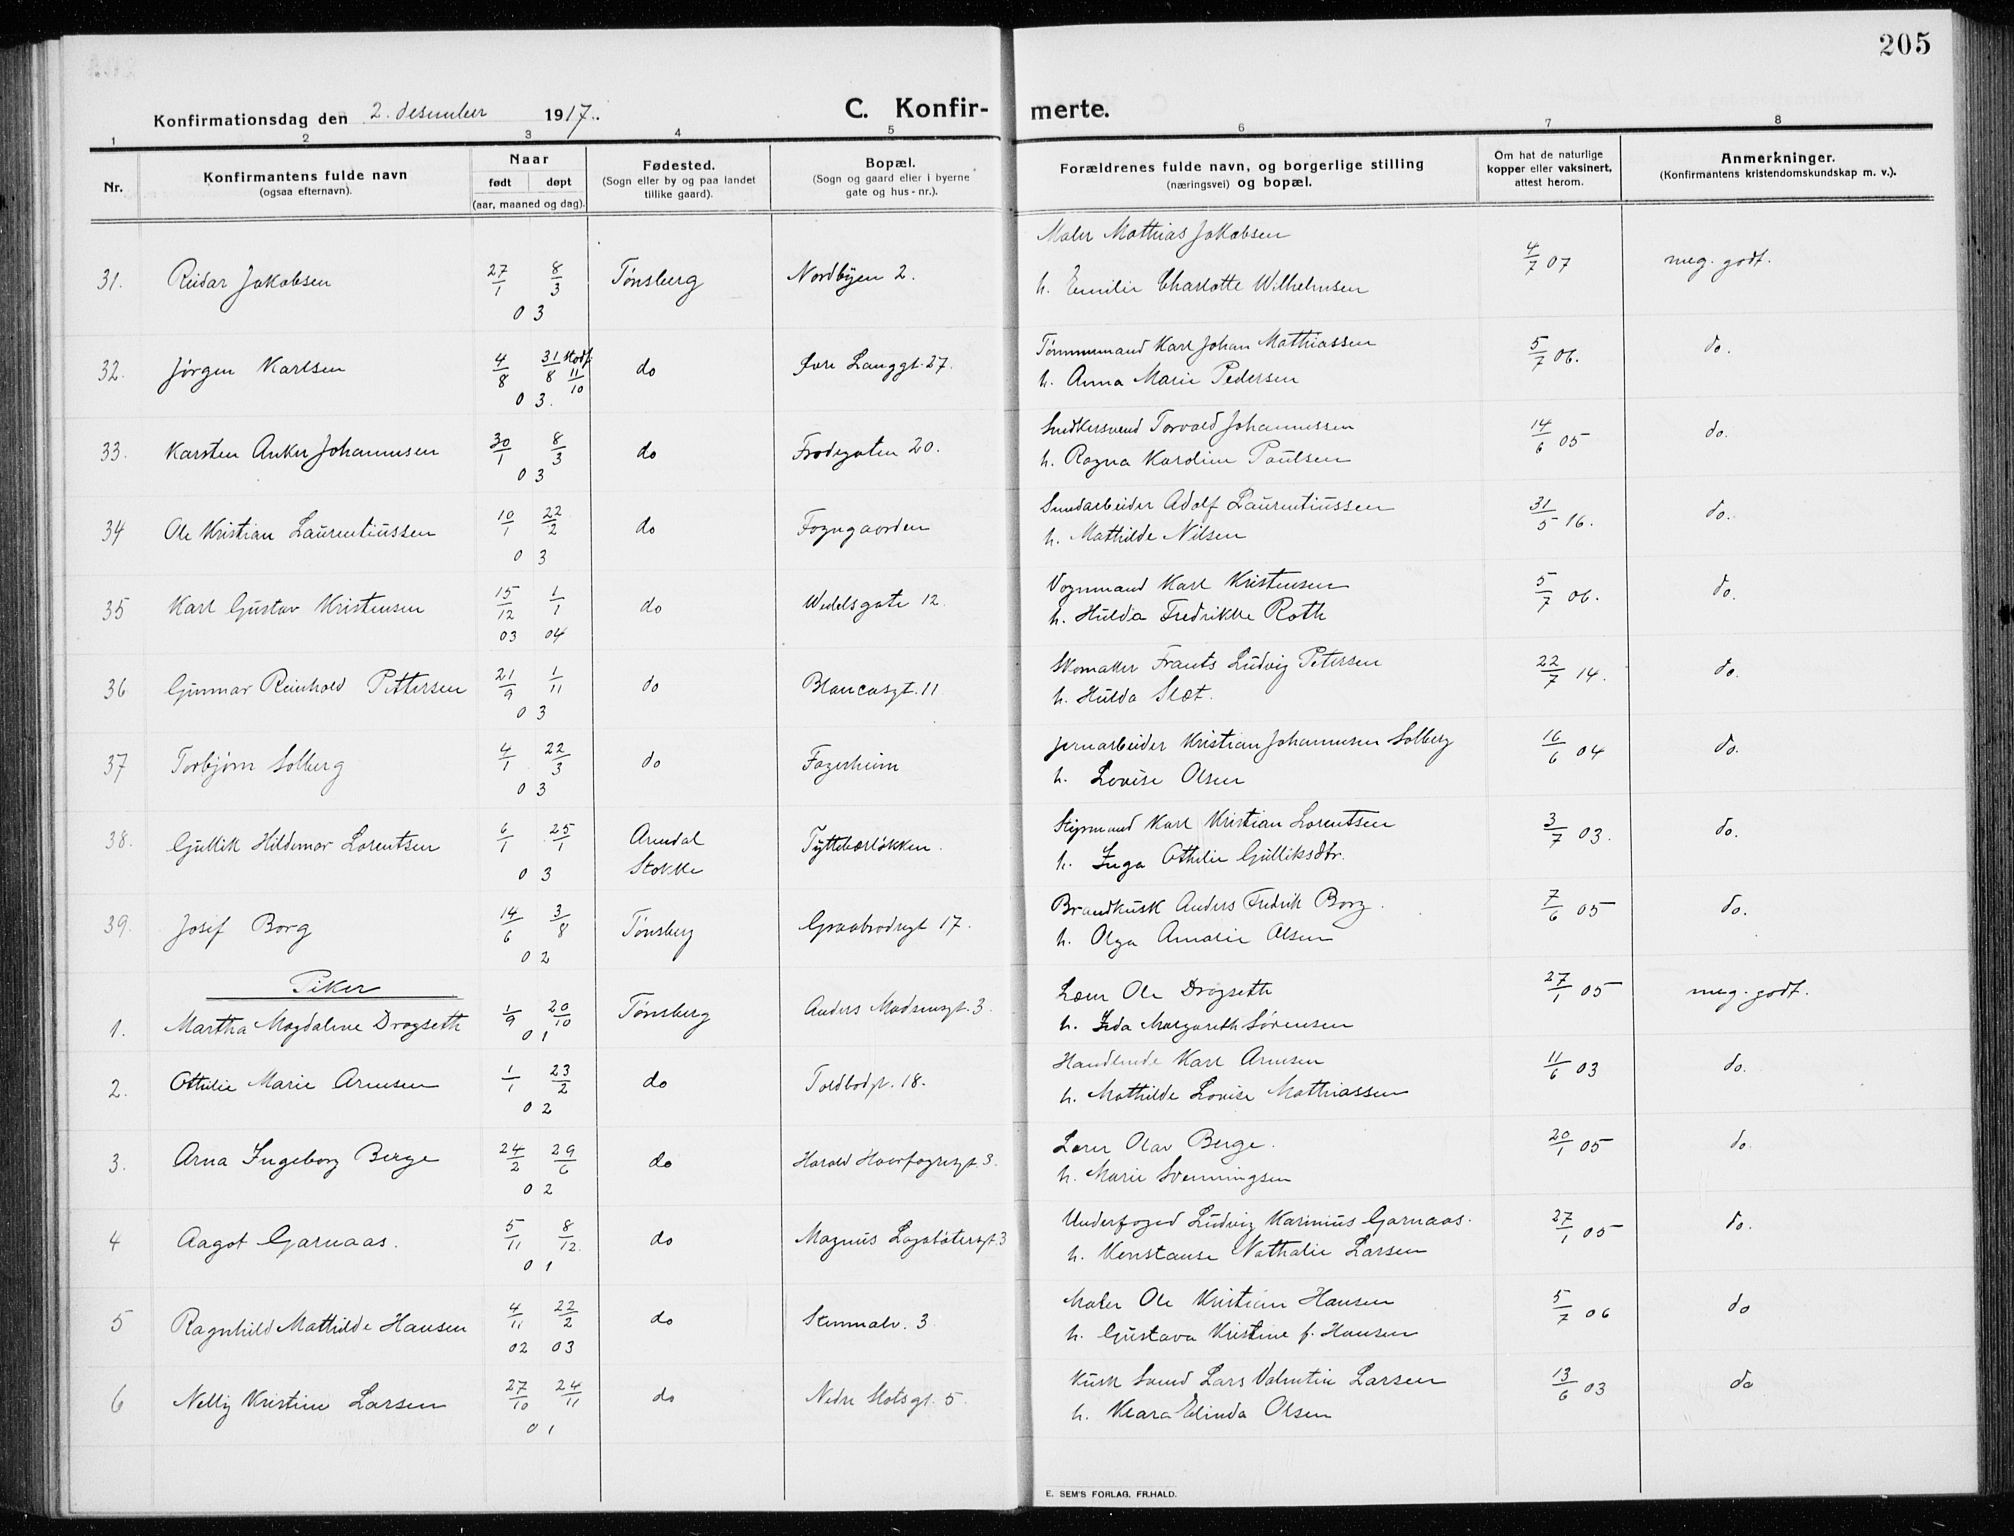 205
Konfirmationsdag den 2. desember 1917.
C. Konfir- merte.
1 2 3 4 5 6 7 8
Nr.
Konfirmantens fulde navn
(ogsaa efternavn).
Naar
født døpt
(aar, maaned og dag).
Fødested.
(Sogn eller by og paa landet
tillike gaard).
Bopæl.
(Sogn og gaard eller i byerne
gate og hus-nr.).
Forældrenes fulde navn, og borgerlige stilling
(næringsvei) og bopæl.
Om hat de naturlige
kopper eller vaksinert,
attest herom.
Anmerkninger.
(Konfirmantens kristendomskundskap m. v.).
Maler Mathias Jakobsen
31. Reidar Jakobsen 27/1 8/3 Tønsberg Nordbyen 2. 4/7 07 meg. godt.
h. Emilie Charlotte Wilhelmsen
03
Tømmermand Karl Johan Mathiassen
32. Jørgen Karlsen 4/8 31/8 stadf. 11/10 do Øvre Langgt. 27. 5/7 06. do.
h. Anna Marie Pedersen
03.
Snedkersvend Torvald Johannessen
33. Karsten Anker Johannesen 30/1 8/3 do Frodegaten 20. 14/6 05 do.
h. Ragna Karoline Paulsen
03
Sundarbeider Adolf Laurentiussen
34 Ole Kristian Laurentiussen 10/1 22/2 do Fogngaarden 31/5 16. do.
h. Mathilde Nilsen
03
Vognmand Karl Kristensen
35 Karl Gustav Kristensen 15/12 1/1 do Wedelsgate 12. 5/7 06. do.
h. Hulda Fredrikke Roth
03 04
Skomaker Frants Ludvig Petersen
36 Gunnar Reinhold Pettersen 21/9 1/11 do Blancasgt. 11 22/7 14. do.
h. Hulda Slæt.
03
Jernarbeider Kristian Johannesen Solberg
37 Torbjørn Solberg 4/1 22/3 do Fagerheim 16/6 04 do.
h. Lovise Olsen
03
Styrmand Karl Kristian Lorentsen
38. Gullik Hildemar Lorentsen 6/1 25/1 Arendal Tyttebærløkken. 3/7 03. do.
h. Inga Othilie Gulliksdtr.
03 Stokke
Brandkusk Anders Fredrik Borg.
39. Josef Borg 14/6 3/8 Tønsberg Graabrødregt 17. 7/6 05 do.
h. Olga Amalie Olsen
02
Piker
Lærer Ole Dragseth
1. Martha Magdalene Dragseth 1/9 20/10 Tønsberg Anders Madsensgt. 3. 27/1 05 meg. godt.
h. Ida Margareth Sørensen
01
Handlende Karl Arnesen
2. Othilie Marie Arnesen 1/1 23/2 do Toldbodgt. 18. 11/6 03 do.
h. Mathilde Lovise Mathiassen
02
Lærer Olav Berge.
3. Arna Ingeborg Berge 24/2 29/6 do Harald Haarfagresgt. 3. 20/1 05 do
h. Marie Svenningsen
02
Underfoged Ludvig Karinius Garnaas.
4 Aagot Garnaas. 5/11 8/12. do Magnus Lagabøtersgt. 3 27/1 05 do.
h. Konstanse Nathalie Larsen
01
Maler Ole Kristian Hansen
5 Ragnhild Mathilde Hansen 4/11 22/2 do Stenmalv. 3. 5/7 06 do
h. Gustava Kristine f. Hansen
02 03
Kusk Svend Lars Valentin Larsen
6 Nelly Kristine Larsen 27/10 24/11 do Nedre Slotsgt. 5. 13/6 03 do
h. Klara Elinda Olsen
01
E. SEM'S FORLAG. FR.HALD.